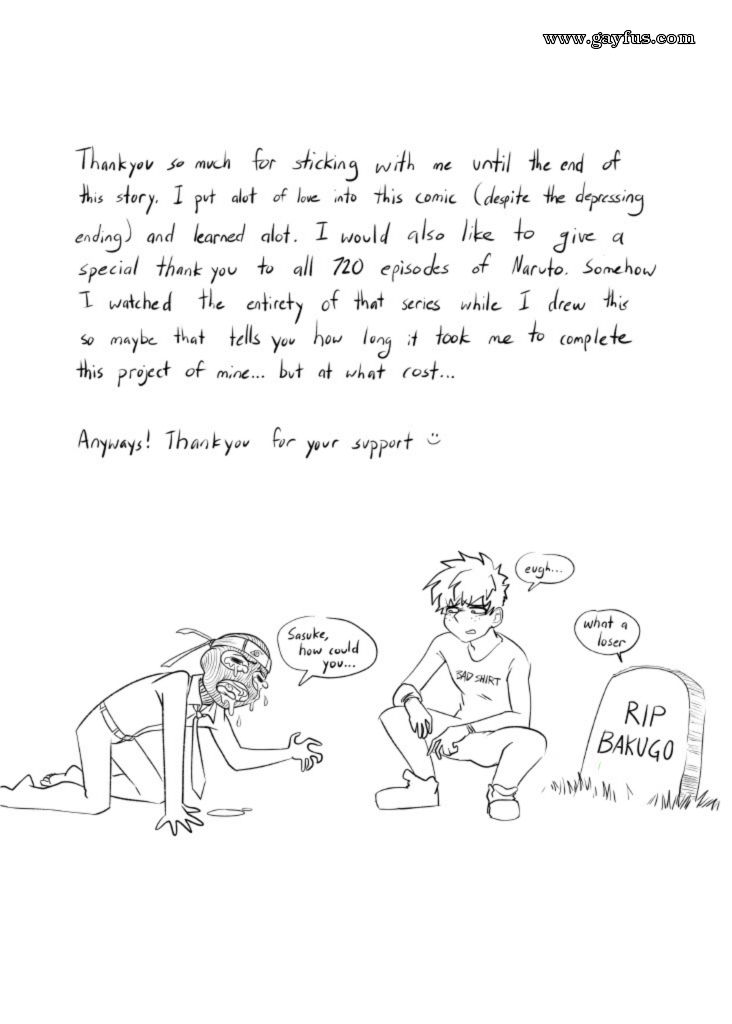 www.gayfus.com
Thankyou so much for sticking with me until the end of
this story. I put alot of love into this comic (despite the depressing
ending) and learned alot. I would also like to give a
special thank you to all 720 episodes of Naruto. Somehow
I watched the entirety of that series while I drew this
so maybe that tells you how long it took me to complete
this project of mine... but at what cost...
Anyways! Thankyou for your support
eugh...
Sasuke,
how could
you...
what a
loser
BAD SHIRT
RIP
BAKUGO